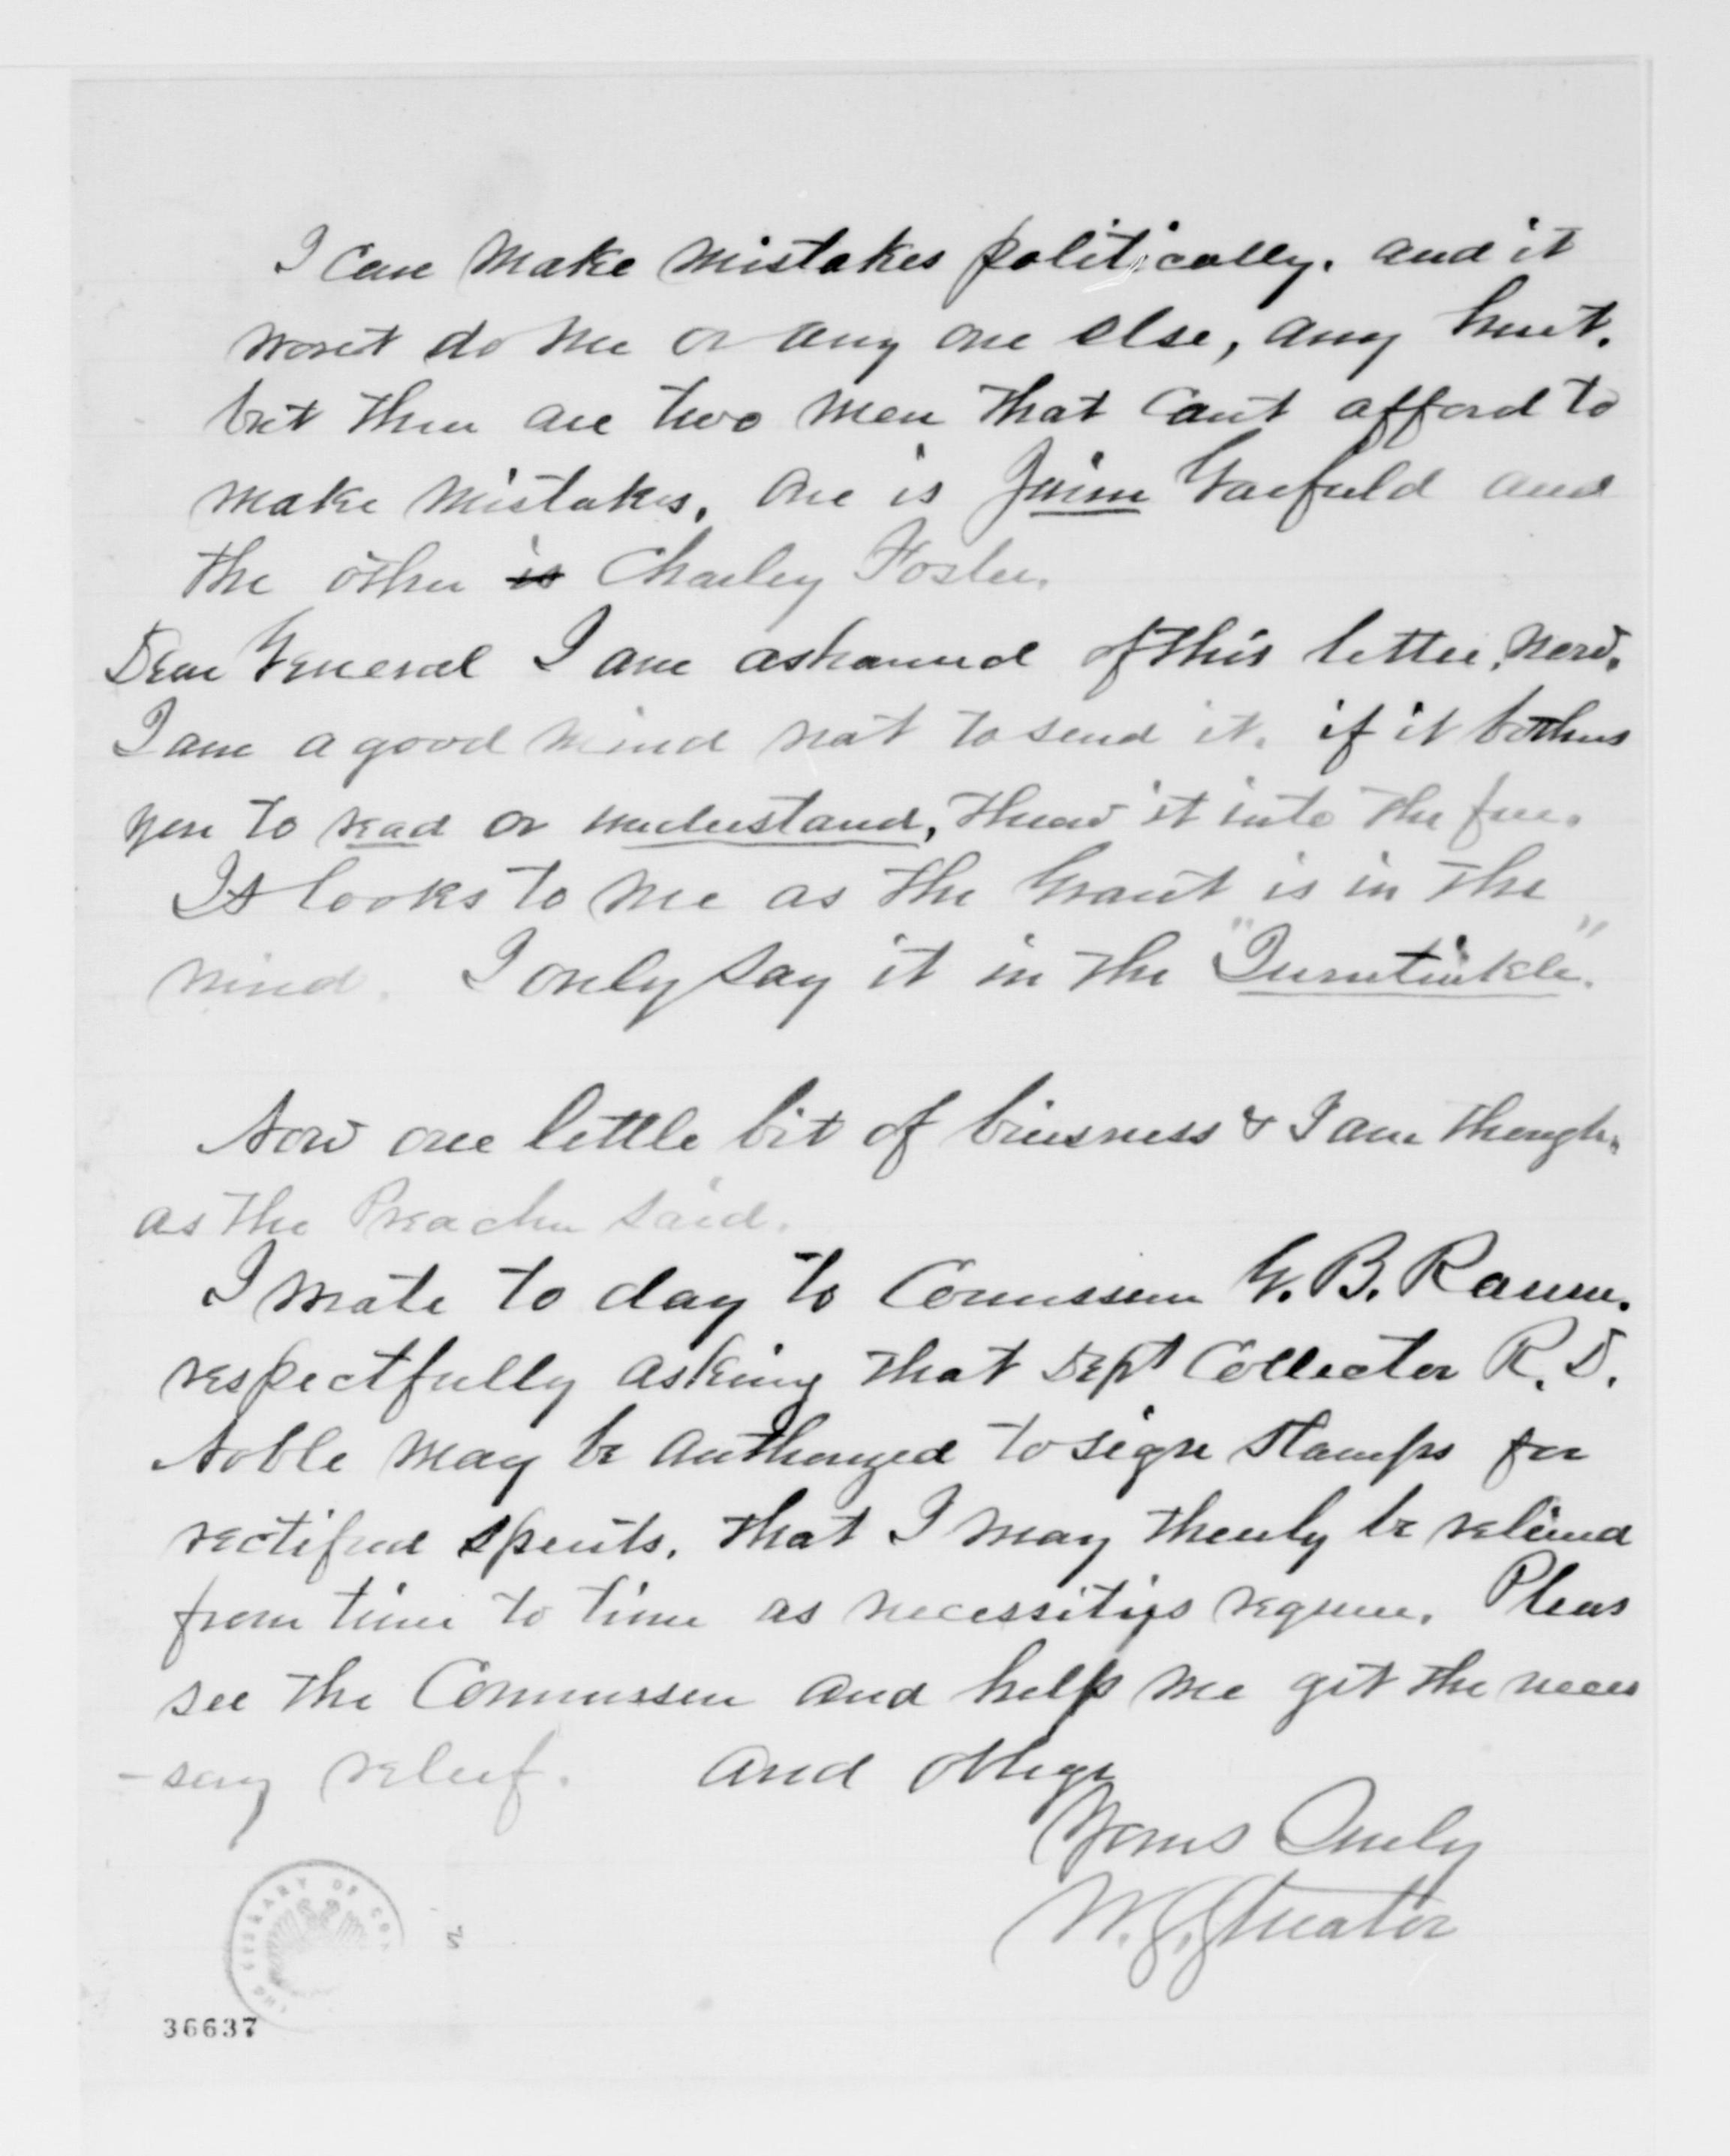 I can make mistakes politically. and it
wont do me or any one else, any hurt.
but there are two men that cant afford to
make mistakes. One is Jimm Garfield and
the other is Charley Foster.
Dear General I am ashamed of this letter, now.
I am a good mind not to send it. if it bothers
you to read or understand, throw it into the fire.
It looks to me as the Grant is in the
mind. I only say it in the
Now one little bit of buisness & I am through.
as the Preacher said.
I wrote to day to Commissioner G. B. Raum.
respectfully asking that Dept Collector R. D.
Noble may be authorized to sign stamps for
rectified spirits. that I may thereby be relieved
from time to time as necessitys require. Pleas
see the Commissioner and help me git the neces
-sary relief. And oblige
Yours Truly
W. J. Streator
THE LIBRARY OF CON
36637